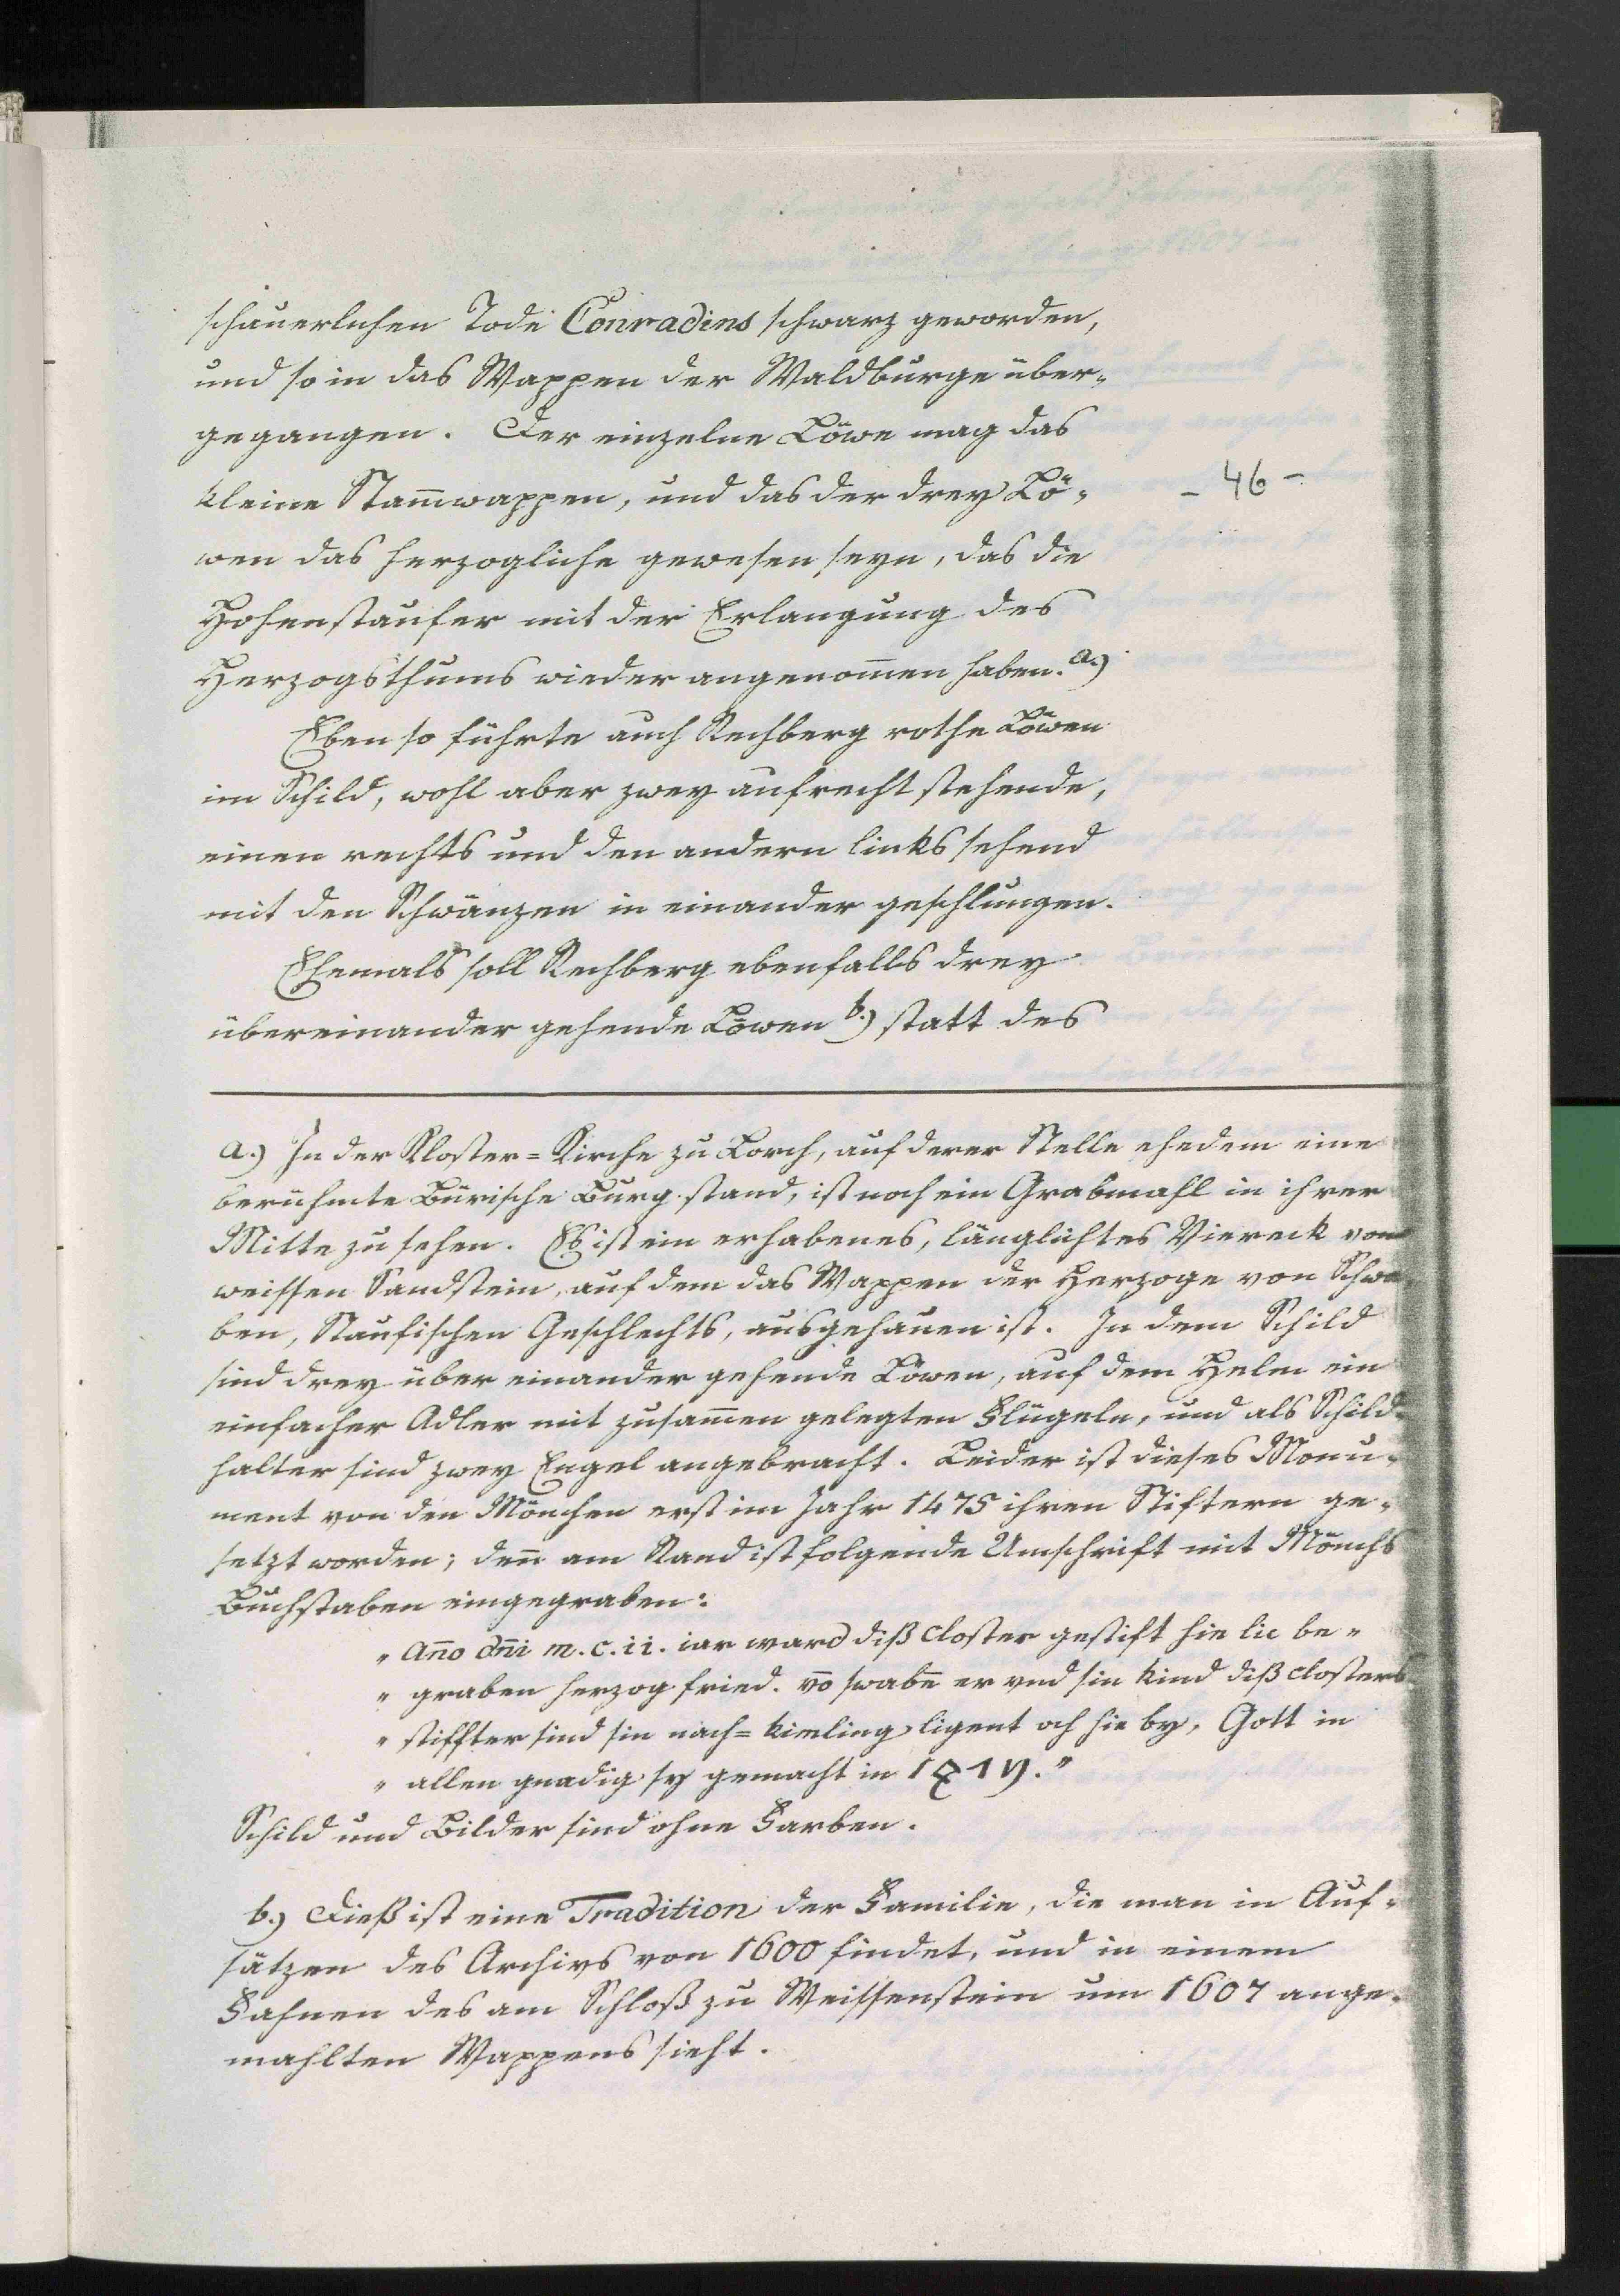 schauerlichen Tode Conradins schwarz geworden,
und so in das Wappen der Waldburge über-
gegangen. Der einzelne Löwe mag das
kleine Stam̄wappen, und das der drey Lö-
- 46 -
wen das herzogliche gewesen seyn, das die
Hohenstaufer mit der Erlangung des
Herzogsthums wieder angenom̄en haben. a.)
Eben so führte auch Rechberg rothe Löwen
im Schild, wohl aber zwey aufrecht stehende,
einen rechts und den andern links sehend
mit den Schwänzen in einander geschlungen.
Ehemals soll Rechberg ebenfalls drey
übereinander gehende Löwen b.) statt des
a.) In der Kloster=Kirche zu Lorch, auf derer Stelle ehedem eine
berühmte Bürische Burg stand, ist noch ein Grabmahl in ihrer
Mitte zu sehen. Es ist ein erhabenes, länglichtes Viereck von
weissen Sandstein, auf dem das Wappen der Herzoge von Schwa-
ben, Staufischen Geschlechts, ausgehauen ist. In dem Schild
sind drey über einander gehende Löwen, auf dem Helm ein
einfacher Adler mit zusam̄en gelegten Flügeln, und als Schild-
halter sind zwey Engel angebracht. Leider ist dieses Monu-
ment von den Mönchen erst im Jahr 1475 ihren Stiftern ge-
setzt worden; den̄ am Rand ist folgende Umschrift mit Mönchs
Buchstaben eingegraben:
" an̄o dn̄i m.c.ii. iar ward diß closter gestift hie lic be-
" graben herzog fried. vō swabn̄ er vnd sin kind diß closters
" stiffter sind sin nach=kimling ligent och hie by, Gott in
" allen gnadig sy gemacht in 1475."
Schild und Bilder sind ohne Farben.
b.) Dieß ist eine Tradition der Familie, die man in Auf-
sätzen des Archivs von 1600 findet, und in einem
Fahnen des am Schloß zu Weissenstein um 1607 ange-
mahlten Wappens sieht.